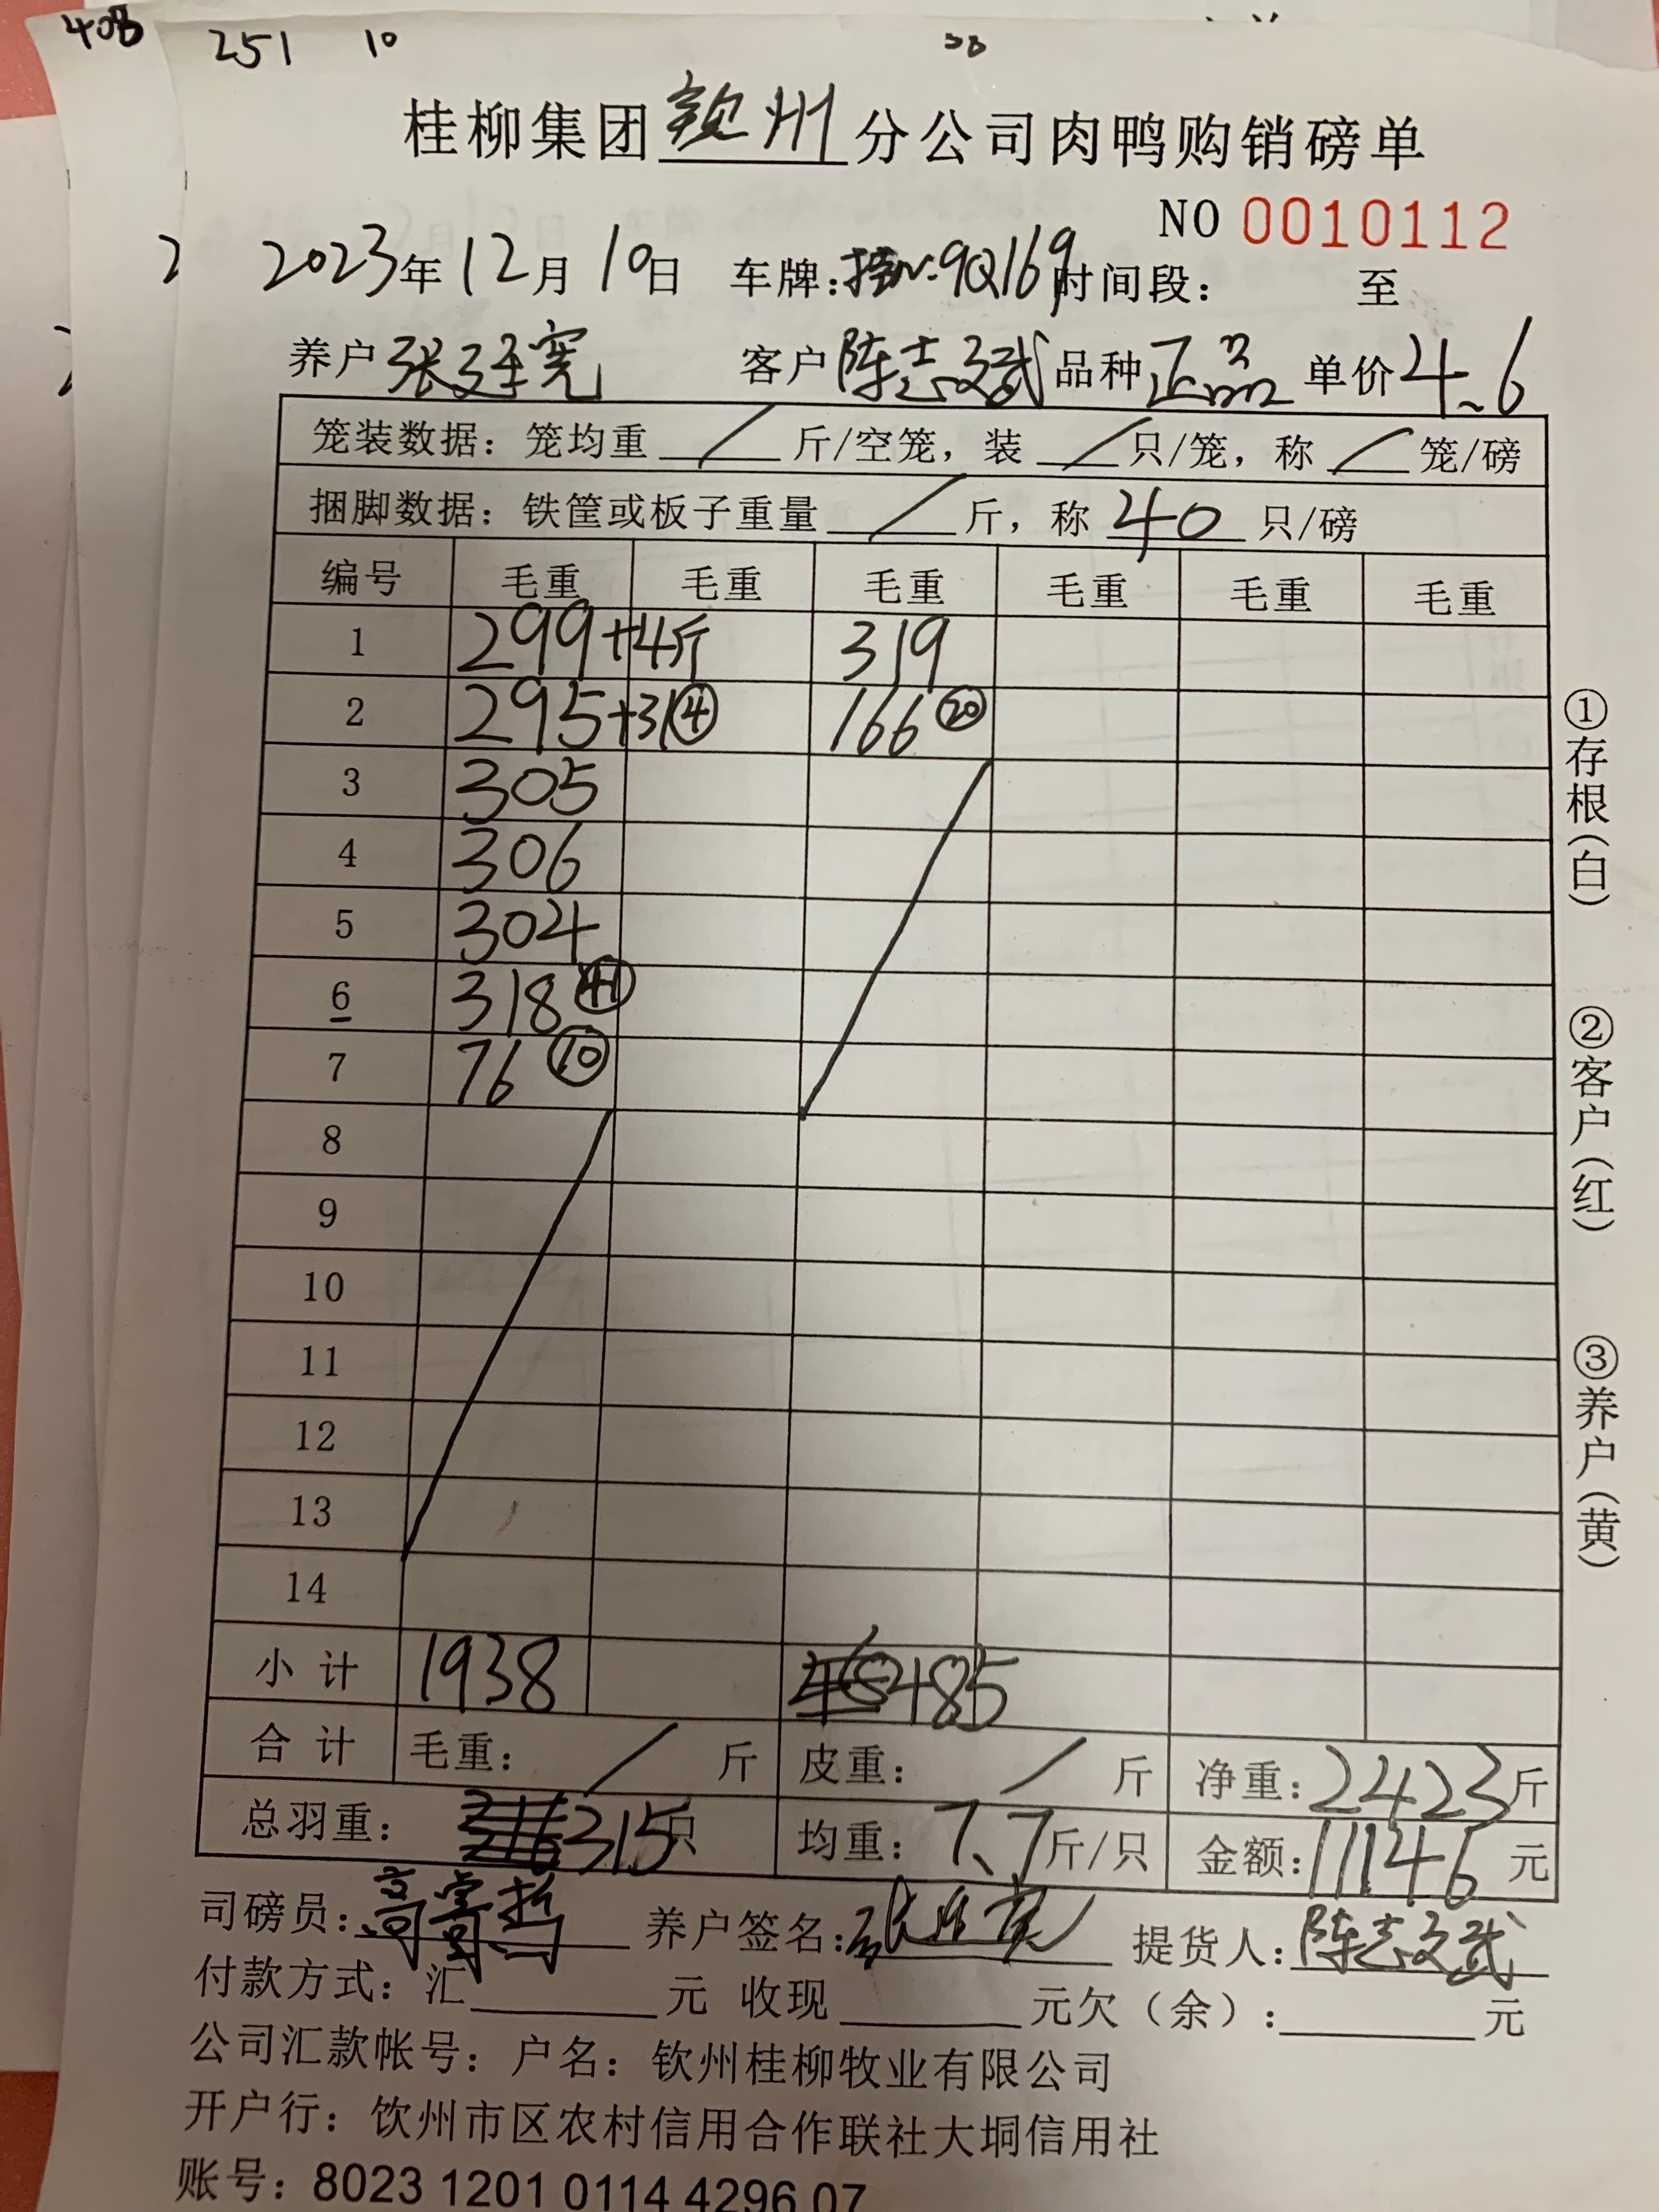 408 251 10
桂柳集团钦州分公司肉鸭购销磅单
NO 0010112
2 2023年12月10日 车牌: 9Q169 时间段: 至
养户 张 宪 客户 陈志文武 品种 正品 单价 4.6
笼装数据: 笼均重 / 斤/空笼, 装 / 只/笼, 称 / 笼/磅
捆脚数据: 铁筐或板子重量 / 斤, 称 40 只/磅
编号 毛重 毛重 毛重 毛重 毛重 毛重
1 299+4斤 319
2 295+31④ 166⑳
3 305
4 306
5 304
6 318㊶
7 76⑩
8
9
10
11
12
13
14
小计 1938 485
合计 毛重: / 斤 皮重: / 斤 净重: 2423斤
总羽重: 315只 均重: 7.7斤/只 金额: 11146 元
司磅员: 养户签名: 提货人: 陈志文武
付款方式: 汇 元 收现 元欠(余): 元
公司汇款帐号: 户名: 钦州桂柳牧业有限公司
开户行: 钦州市区农村信用合作联社大垌信用社
账号: 8023 1201 0114 4296 07
①存根(白)
②客户(红)
③养户(黄)